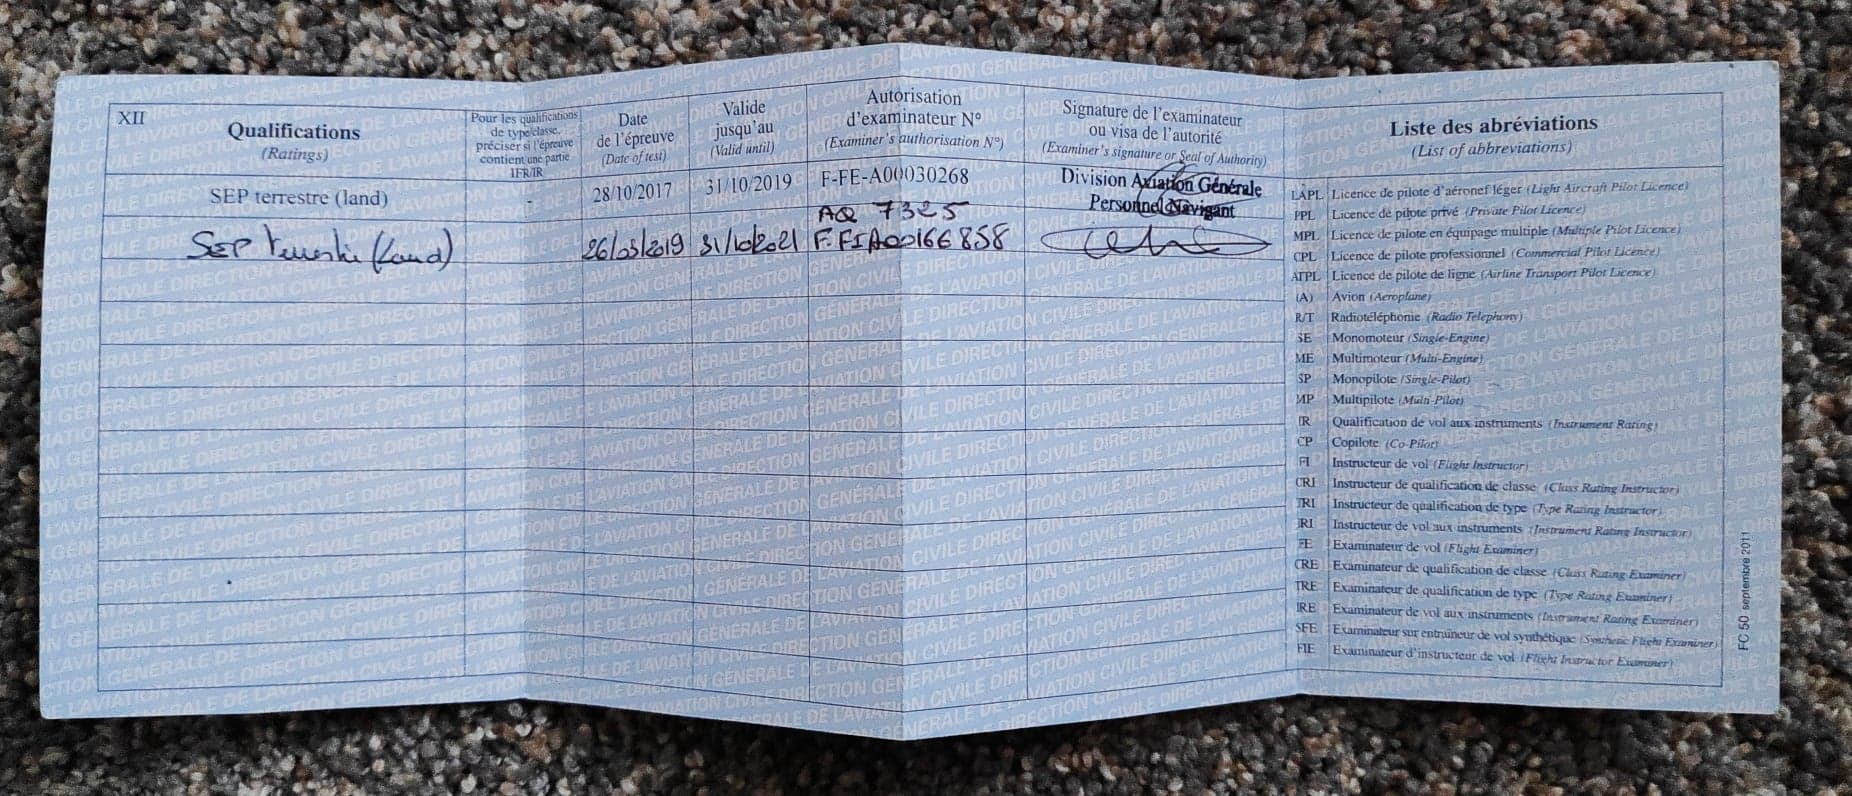 XII
Qualifications
(Ratings)
Pour les qualifications
de type/classe,
préciser si l'épreuve
contient une partie
IFR/IR
Date
de l'épreuve
(Date of test)
Valide
jusqu'au
(Valid until)
Autorisation
d'examinateur N°
(Examiner's authorisation N°)
Signature de l'examinateur
ou visa de l'autorité
(Examiner's signature or Seal of Authority)
SEP terrestre (land)
-
28/10/2017
31/10/2019
F-FE-A00030268
Division Aviation Générale
Personnel Navigant
SEP terrestre (land)
26/03/2019
31/10/2021
AQ 7325
F.FIA00166858
Liste des abréviations
(List of abbreviations)
LAPL Licence de pilote d'aéronef léger (Light Aircraft Pilot Licence)
PPL Licence de pilote privé (Private Pilot Licence)
MPL Licence de pilote en équipage multiple (Multiple Pilot Licence)
CPL Licence de pilote professionnel (Commercial Pilot Licence)
ATPL Licence de pilote de ligne (Airline Transport Pilot Licence)
(A) Avion (Aeroplane)
R/T Radiotéléphonie (Radio Telephony)
SE Monomoteur (Single-Engine)
ME Multimoteur (Multi-Engine)
SP Monopilote (Single-Pilot)
MP Multipilote (Multi-Pilot)
IR Qualification de vol aux instruments (Instrument Rating)
CP Copilote (Co-Pilot)
FI Instructeur de vol (Flight Instructor)
CRI Instructeur de qualification de classe (Class Rating Instructor)
TRI Instructeur de qualification de type (Type Rating Instructor)
IRI Instructeur de vol aux instruments (Instrument Rating Instructor)
FE Examinateur de vol (Flight Examiner)
CRE Examinateur de qualification de classe (Class Rating Examiner)
TRE Examinateur de qualification de type (Type Rating Examiner)
IRE Examinateur de vol aux instruments (Instrument Rating Examiner)
SFE Examinateur sur entraîneur de vol synthétique (Synthetic Flight Examiner)
FIE Examinateur d'instructeur de vol (Flight Instructor Examiner)
FC 50 septembre 2011
DIRECTION GÉNÉRALE DE L'AVIATION CIVILE